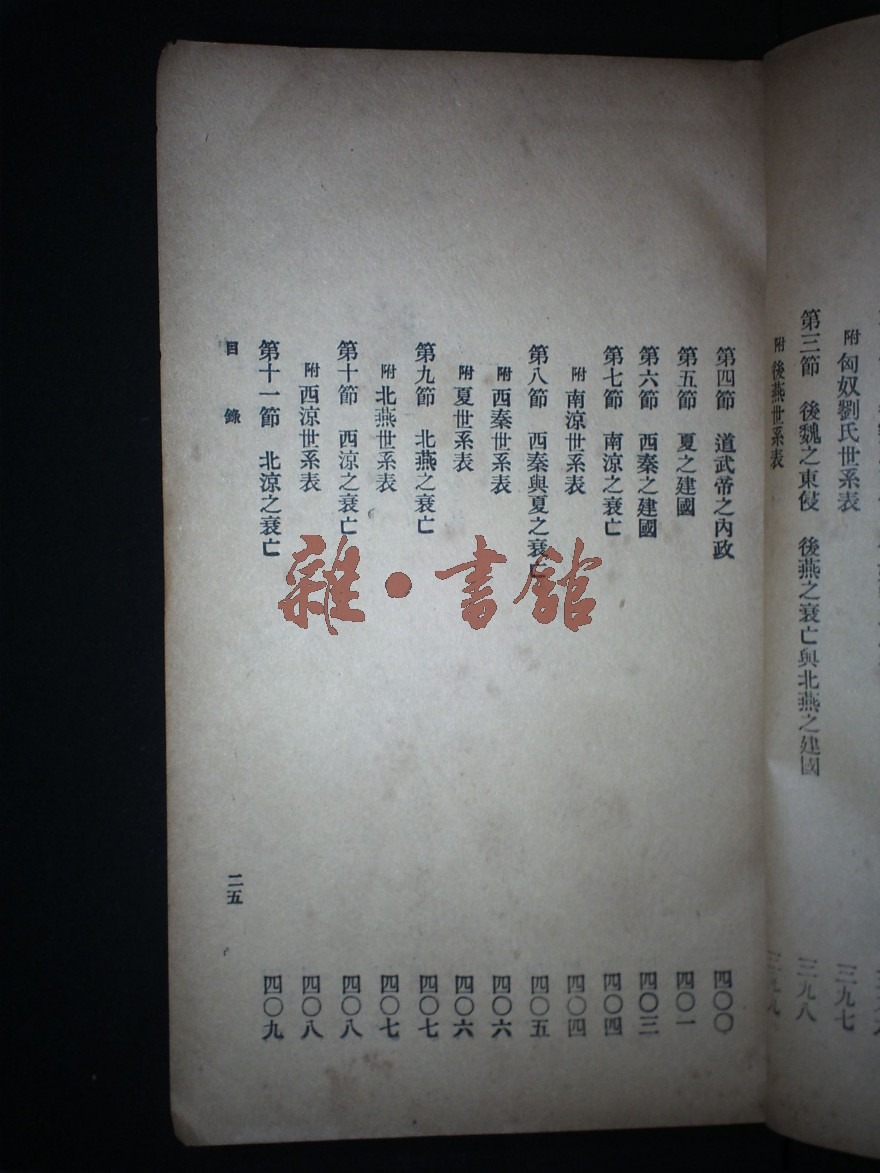 附 匈奴劉氏世系表 三九七
第三節 後魏之東侵 後燕之衰亡與北燕之建國 三九八
附 後燕世系表
第四節 道武帝之內政 四〇〇
第五節 夏之建國 四〇一
第六節 西秦之建國 四〇三
第七節 南涼之衰亡 四〇四
附 南涼世系表 四〇四
第八節 西秦與夏之衰亡 四〇五
附 西秦世系表 四〇六
附 夏世系表 四〇六
第九節 北燕之衰亡 四〇七
附 北燕世系表 四〇七
第十節 西涼之衰亡 四〇八
附 西涼世系表 四〇八
第十一節 北涼之衰亡 四〇九
目錄 二五
雜·書館